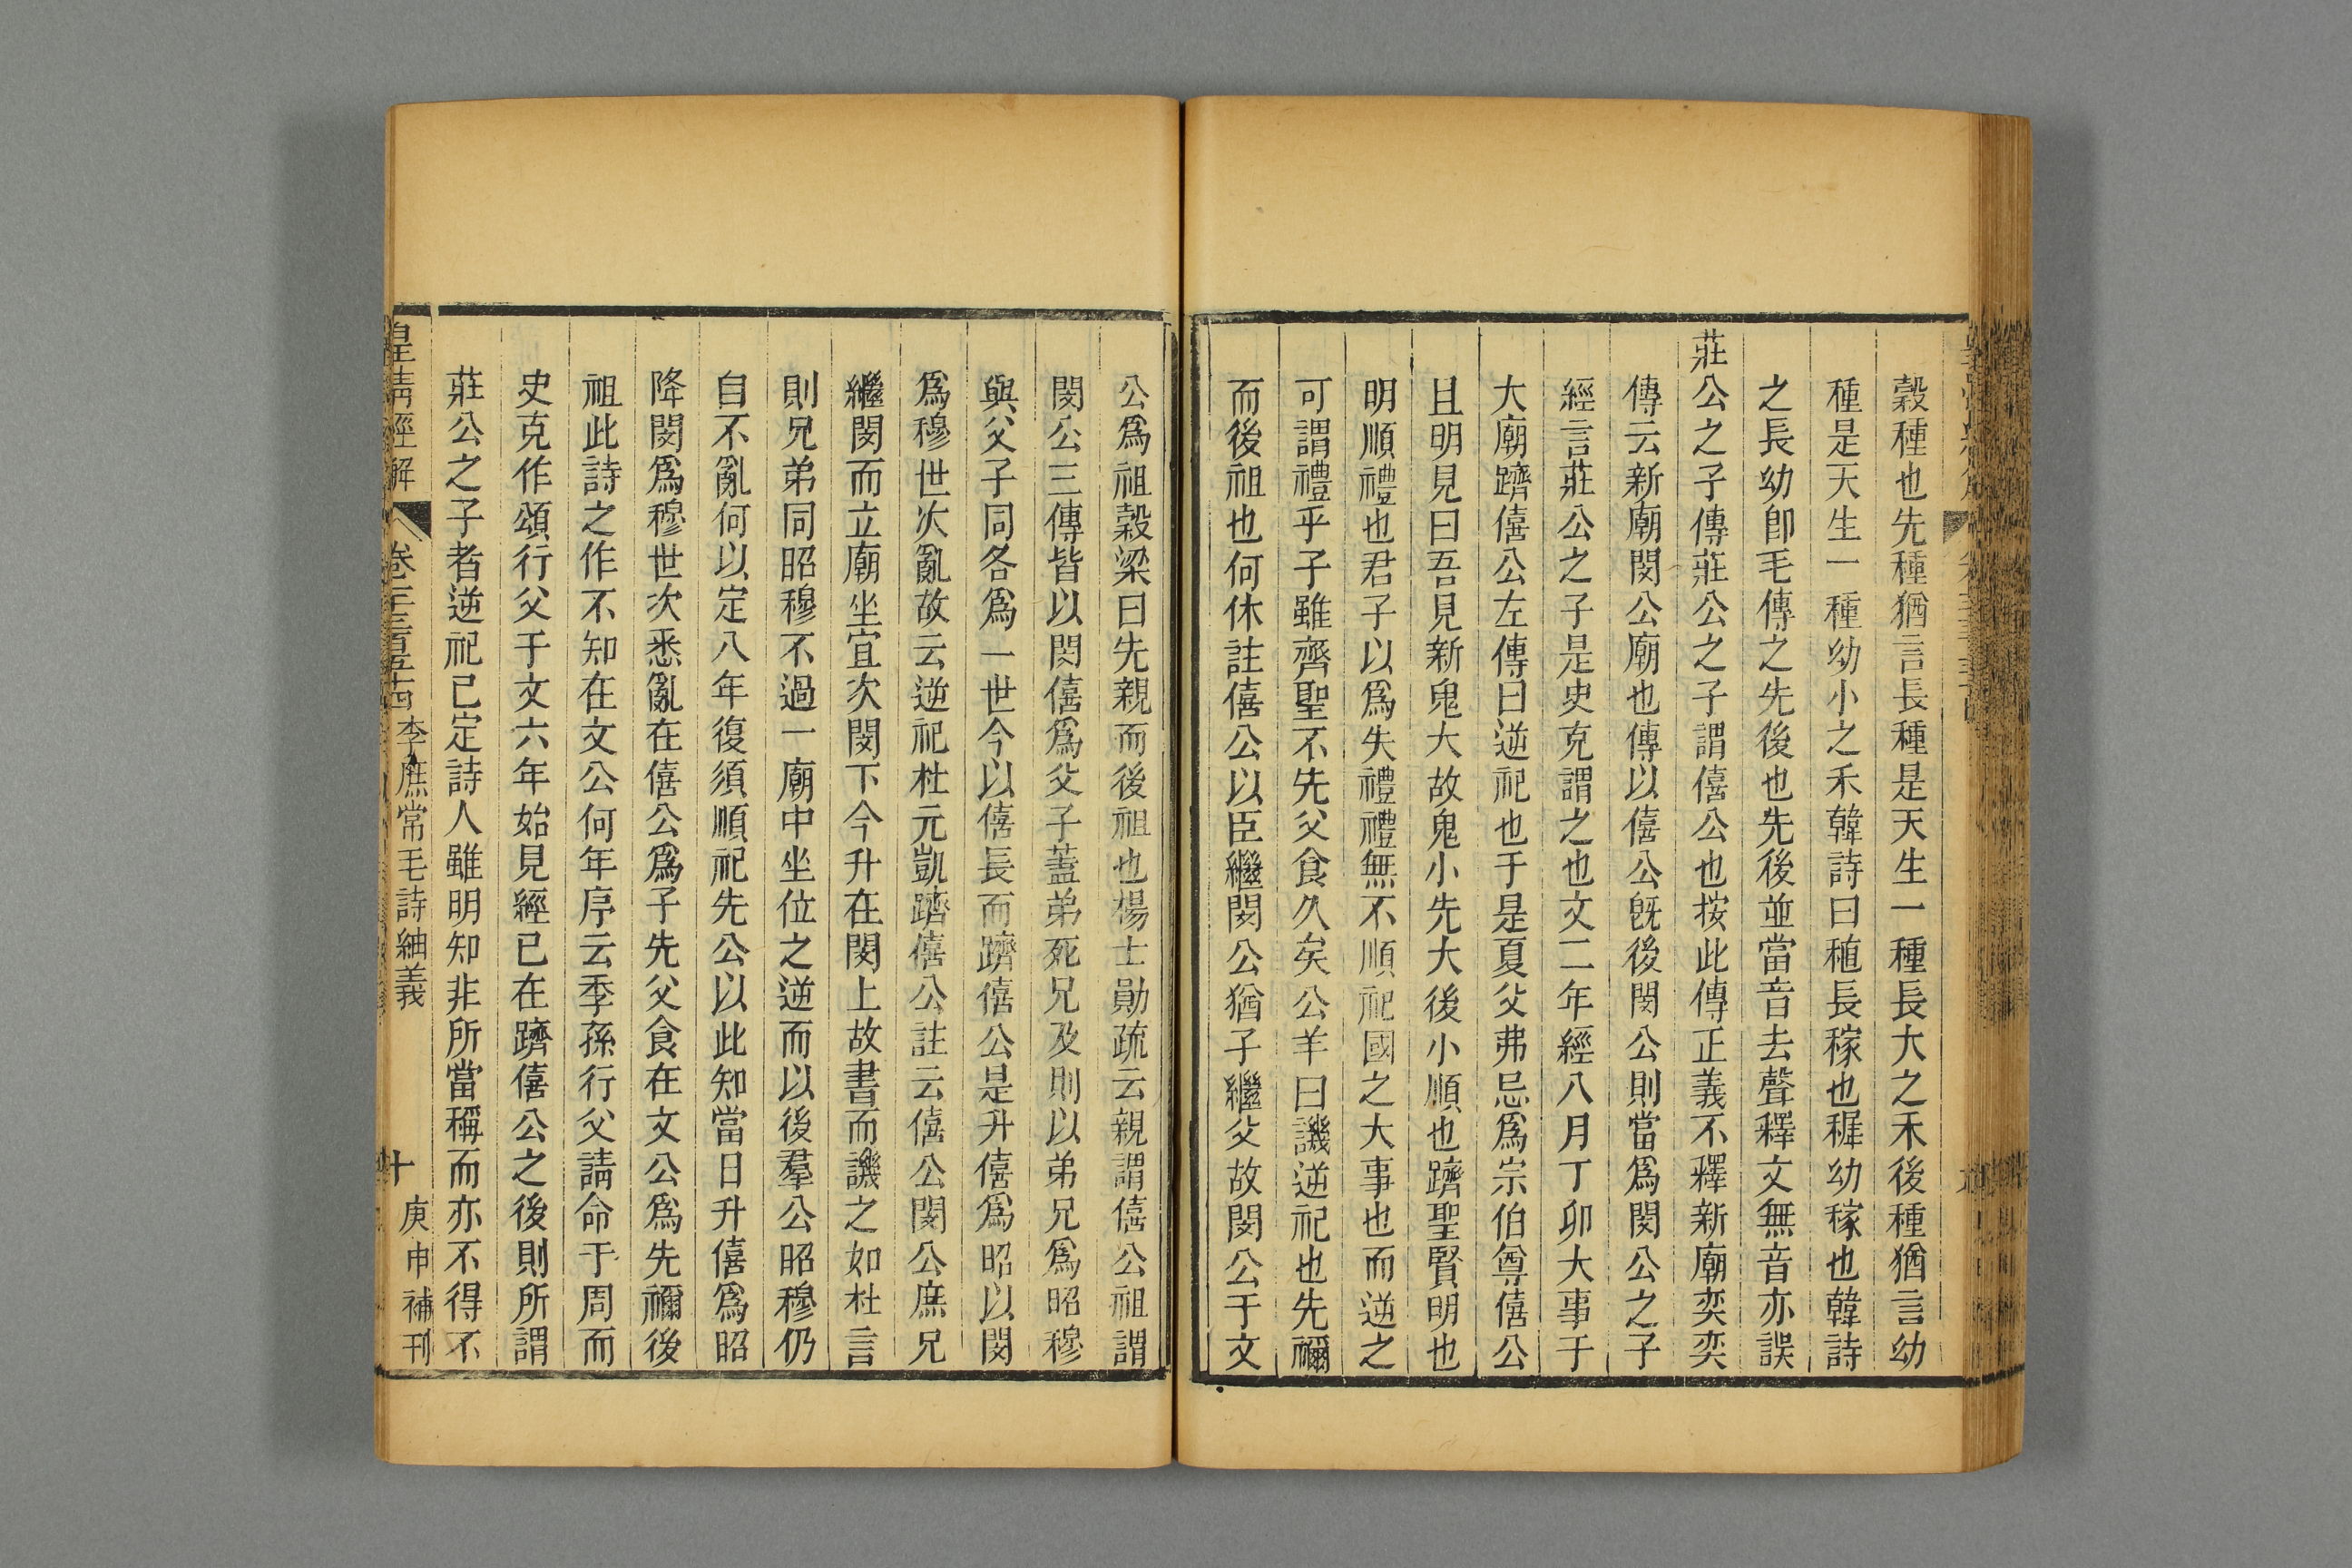 穀種也先種猶言長種是天生一種長大之禾後種猶言幼
種是天生一種幼小之禾韓詩曰稙長稼也稺幼稼也韓詩
之長幼卽毛傳之先後也先後並當音去聲釋文無音亦誤
莊公之子傳莊公之子謂僖公也按此傳正義不釋新廟奕奕
傳云新廟閔公廟也傳以僖公旣後閔公則當爲閔公之子
經言莊公之子是史克謂之也文二年經八月丁卯大事于
大廟躋僖公左傳曰逆祀也于是夏父弗忌爲宗伯尊僖公
且明見曰吾見新鬼大故鬼小先大後小順也躋聖賢明也
明順禮也君子以爲失禮禮無不順祀國之大事也而逆之
可謂禮乎子雖齊聖不先父食久矣公羊曰譏逆祀也先禰
而後祖也何休註僖公以臣繼閔公猶子繼父故閔公于文
公爲祖穀梁曰先親而後祖也楊士勛疏云親謂僖公祖謂
閔公三傳皆以閔僖爲父子蓋弟死兄及則以弟兄爲昭穆
與父子同各爲一世今以僖長而躋僖公是升僖爲昭以閔
爲穆世次亂故云逆祀杜元凱躋僖公註云僖公閔公庶兄
繼閔而立廟坐宜次閔下今升在閔上故書而譏之如杜言
則兄弟同昭穆不過一廟中坐位之逆而以後羣公昭穆仍
自不亂何以定八年復須順祀先公以此知當日升僖爲昭
降閔爲穆世次悉亂在僖公爲子先父食在文公爲先禰後
祖此詩之作不知在文公何年序云季孫行父請命于周而
史克作頌行父于文六年始見經已在躋僖公之後則所謂
莊公之子者逆祀已定詩人雖明知非所當稱而亦不得不
皇清經解 卷一千三百五十四 李庶常毛詩紬義 十 庚申補刊